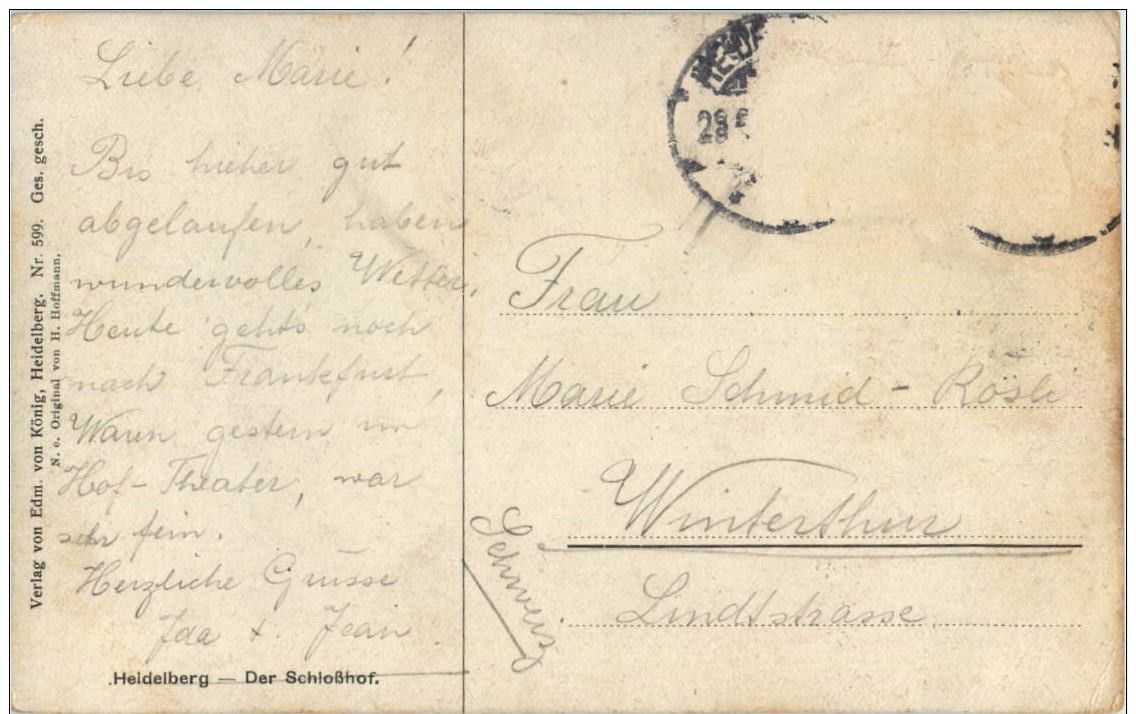 Liebe Marie!
Bis hieher gut
abgelaufen, haben
wundervolles Wetter,
Heute geht's noch
nach Frankfurt,
Waren gestern im
Hof-Theater, war
sehr fein.
Herzliche Grüsse
Ida + Jean.
Heidelberg — Der Schloßhof.
Verlag von Edm. von König, Heidelberg. Nr. 599. Ges. gesch.
N. e. Original von H. Hoffmann.
28
Frau
Marie Schmid-Rösli
Winterthur
Schweiz
Lindtstrasse